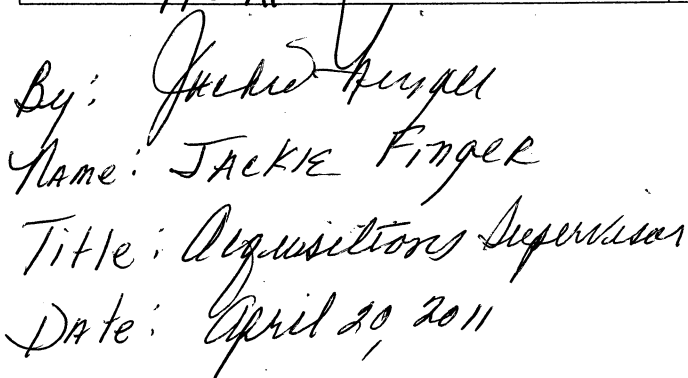 By: Jackie Finger
Name: JACKIE FINGER
Title: Acquisitions Supervisor
Date: April 20, 2011